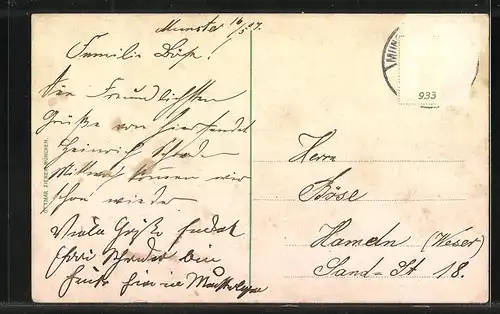 Munster 16/5 17.
Familie Böse!
Die Freundlichsten
Grüße von hier sendet
Heinrich
Mittwoch kommen wir
schon wieder
Viele Grüße sendet
Herrn
Böse
Hameln (Weser)
Sand-St 18.
MÜN
933
OTTMAR ZIEHER, MÜNCHEN